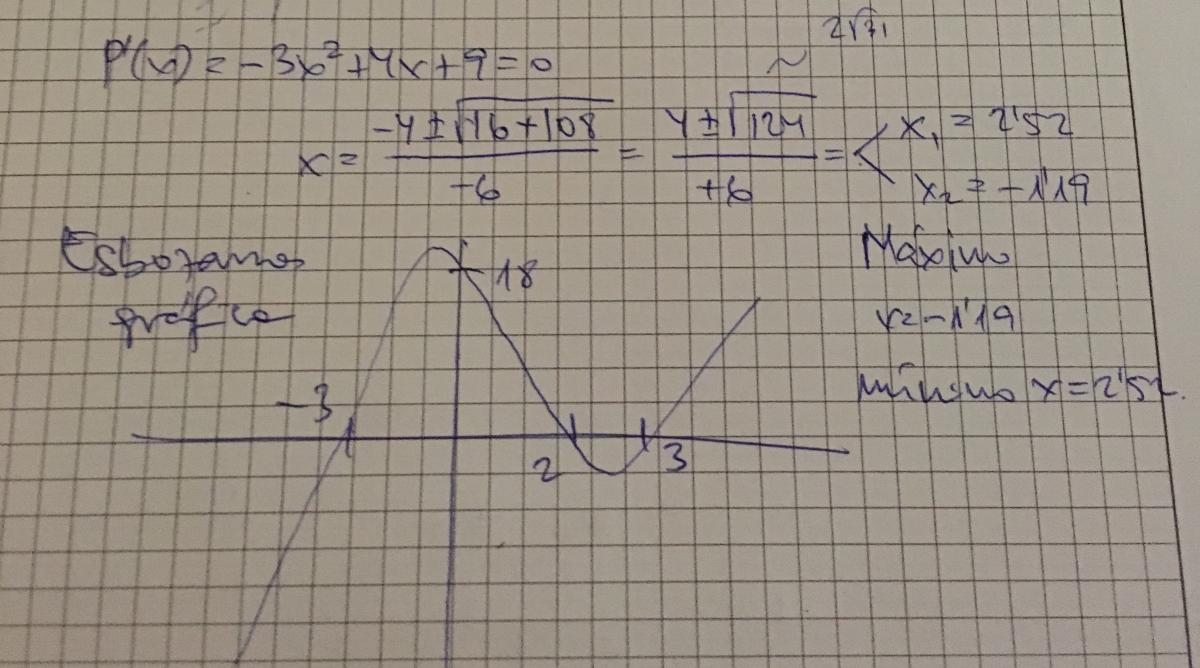 P'(x) = -3x² + 4x + 9 = 0
2√31
x = (-4 ± √(16+108))/(-6) = (4 ± √124)/(+6) = < x₁ = 2'52
x₂ = -1'19
Esbozamos
gráfica
18
-3
2
3
Máximo
x = -1'19
mínimo x = 2'52.